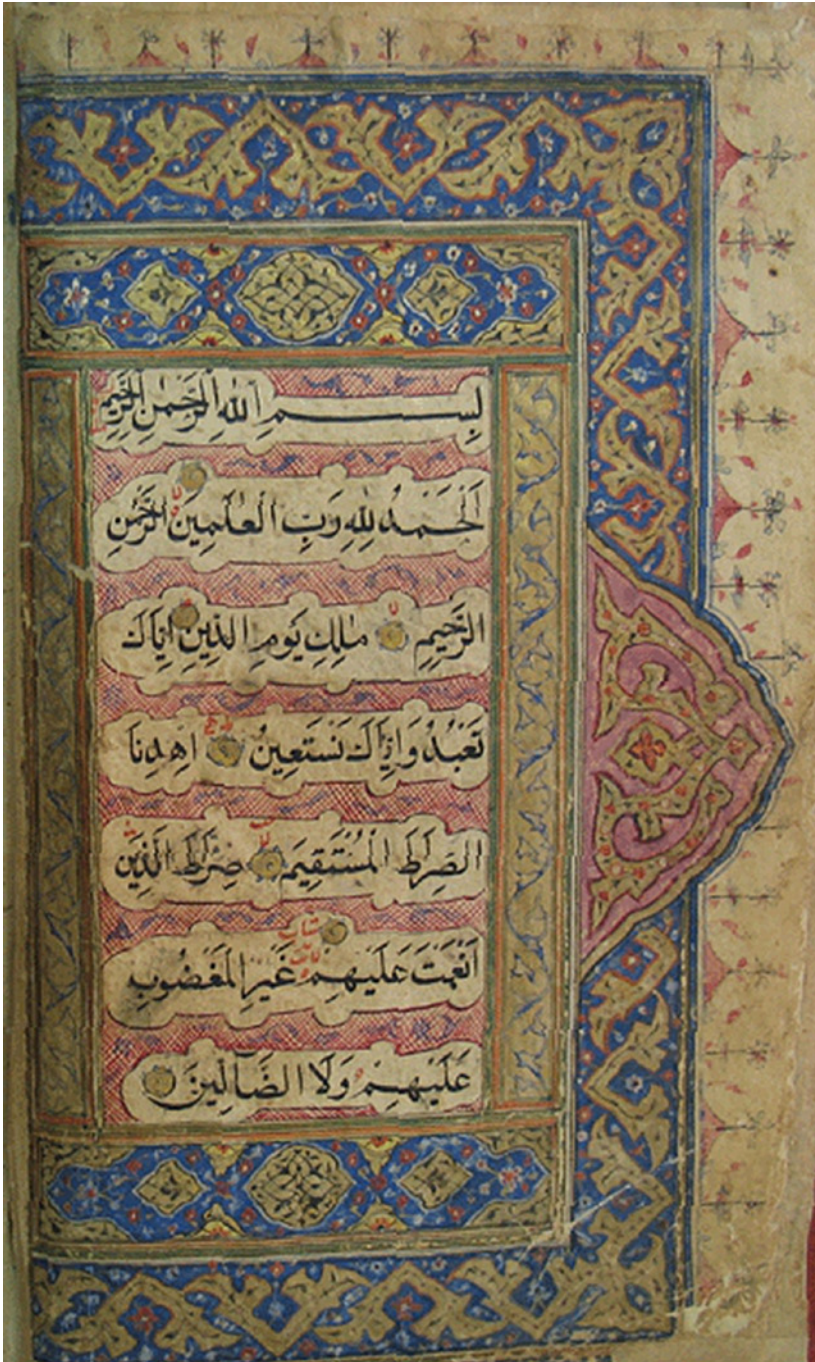 بِسْمِ اللهِ الرَّحْمٰنِ الرَّحِيْمِ
اَلْحَمْدُ لِلّٰهِ رَبِّ الْعٰلَمِيْنَ الرَّحْمٰنِ
الرَّحِيْمِ مٰلِكِ يَوْمِ الدِّيْنِ اِيَّاكَ
نَعْبُدُ وَاِيَّاكَ نَسْتَعِيْنُ اِهْدِنَا
الصِّرَاطَ الْمُسْتَقِيْمَ صِرَاطَ الَّذِيْنَ
اَنْعَمْتَ عَلَيْهِمْ غَيْرِ الْمَغْضُوْبِ
عَلَيْهِمْ وَلَا الضَّآلِّيْنَ